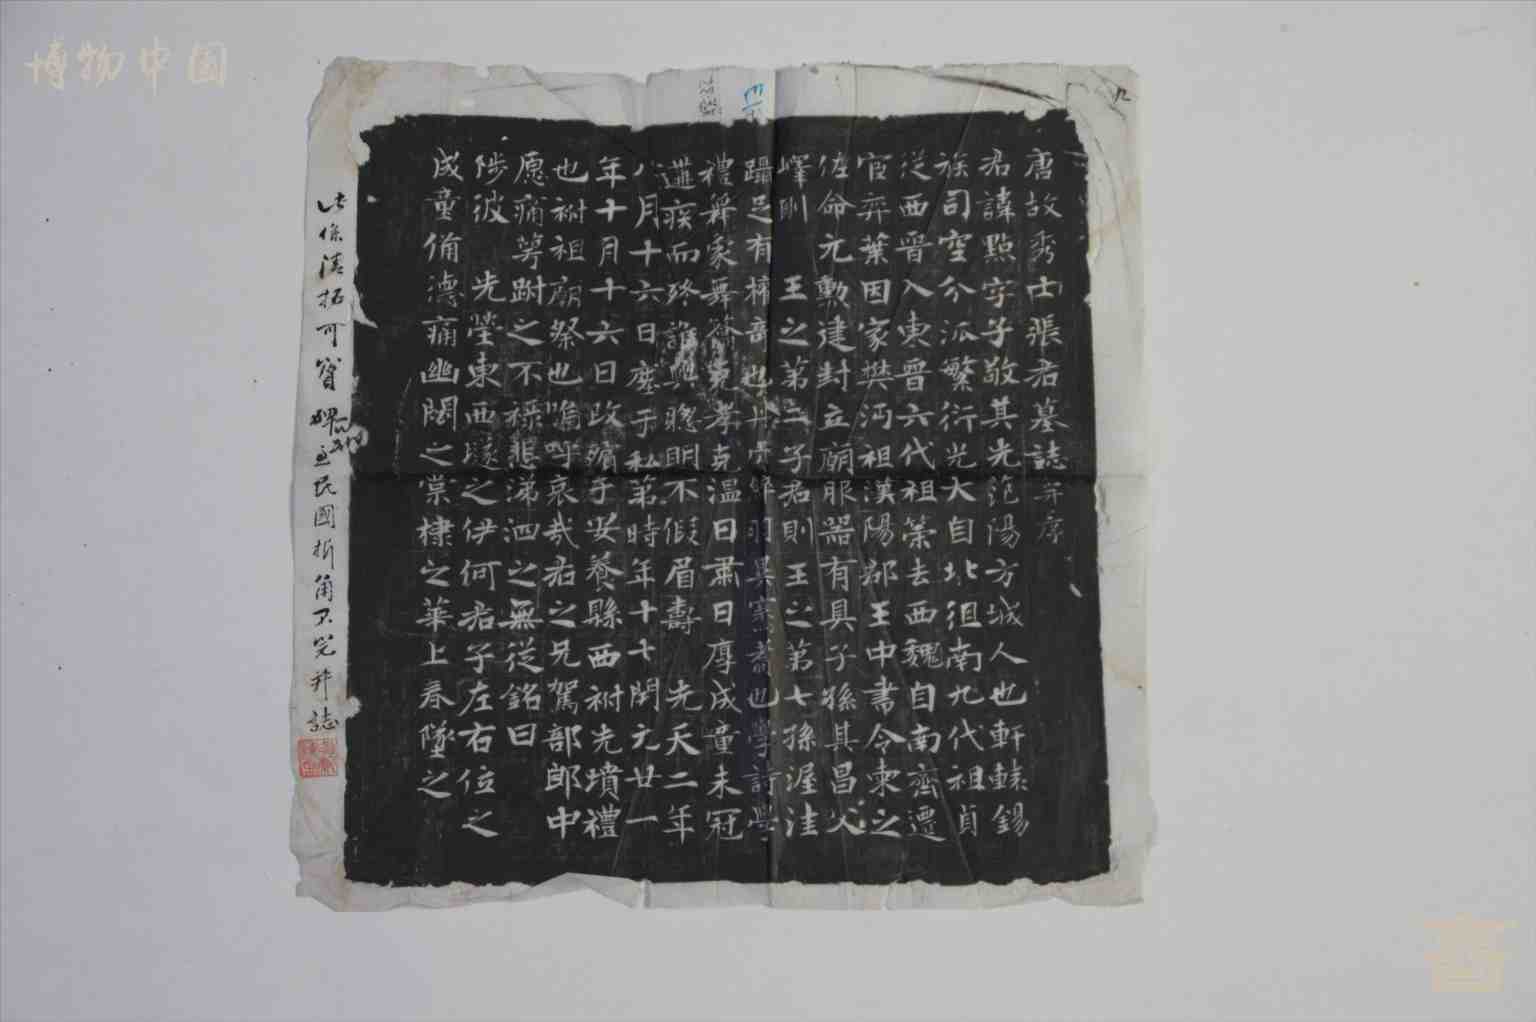 博物中国
唐故秀士張君墓誌并序
君諱點字子敬其先范陽方城人也軒轅錫
族司空分派繁衍光大自北徂南九代祖貞
從西晉入東晉六代祖策去西魏自南齊遷
宦弈葉因家樊沔祖漢陽郡王中書令柬之
佐命元勲建封立廟服器有具子孫其昌父
嶧則 王之第二子君則王之第七孫渥洼
躡足有神奇也丹穴 羽異 者也學詩學
禮舞象舞 克孝克溫日肅日庠成童未冠
遘疾而終誰與聰明不假眉壽 先天二年
八月十六日 于私第時年十七開元廿一
年十月十六日改殯于安養縣西祔先墳禮
也祔祖廟祭也嗚呼哀哉君之兄駕部郎中
愿痛萼跗之不祿悲涕泗之無從銘曰
陟彼 先塋東西隧之伊何君子左右位之
成童備德痛幽閟之棠棣之華上春墜之
此係清拓可寶碑至民國折角不完并誌